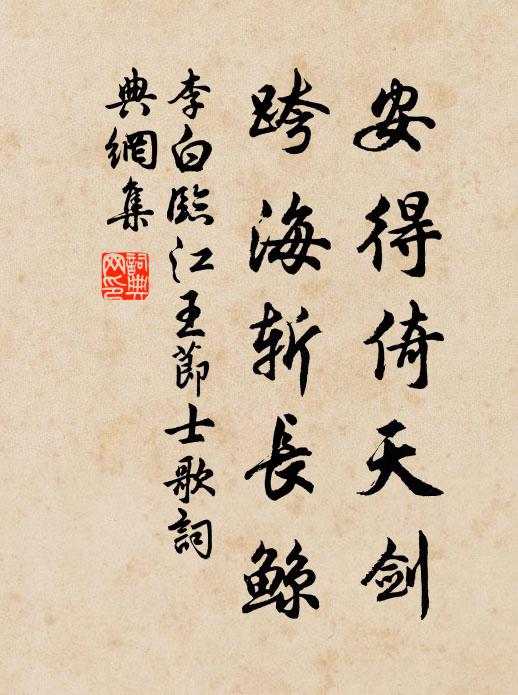 安得倚天劍
跨海斬長鯨
李白臨江王節士歌詞
典網集
詞典網印